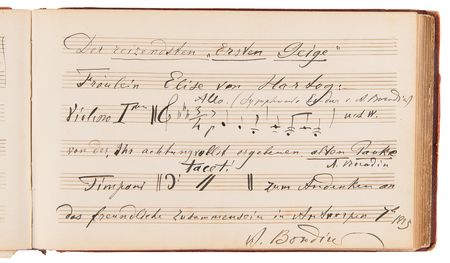 Der reizendsten „Ersten Geige"
Fräulein Elise von Hartog:
Allo. (Symphonie Es dur v. A. Borodin)
Violino Imo u.s.w.
von der, Ihr achtungsvollst ergebenen alten Pauke
A. Borodin
tacet!
Timpani zum Andenken an
das freundliche Zusammensein in Antwerpen
A. Borodin